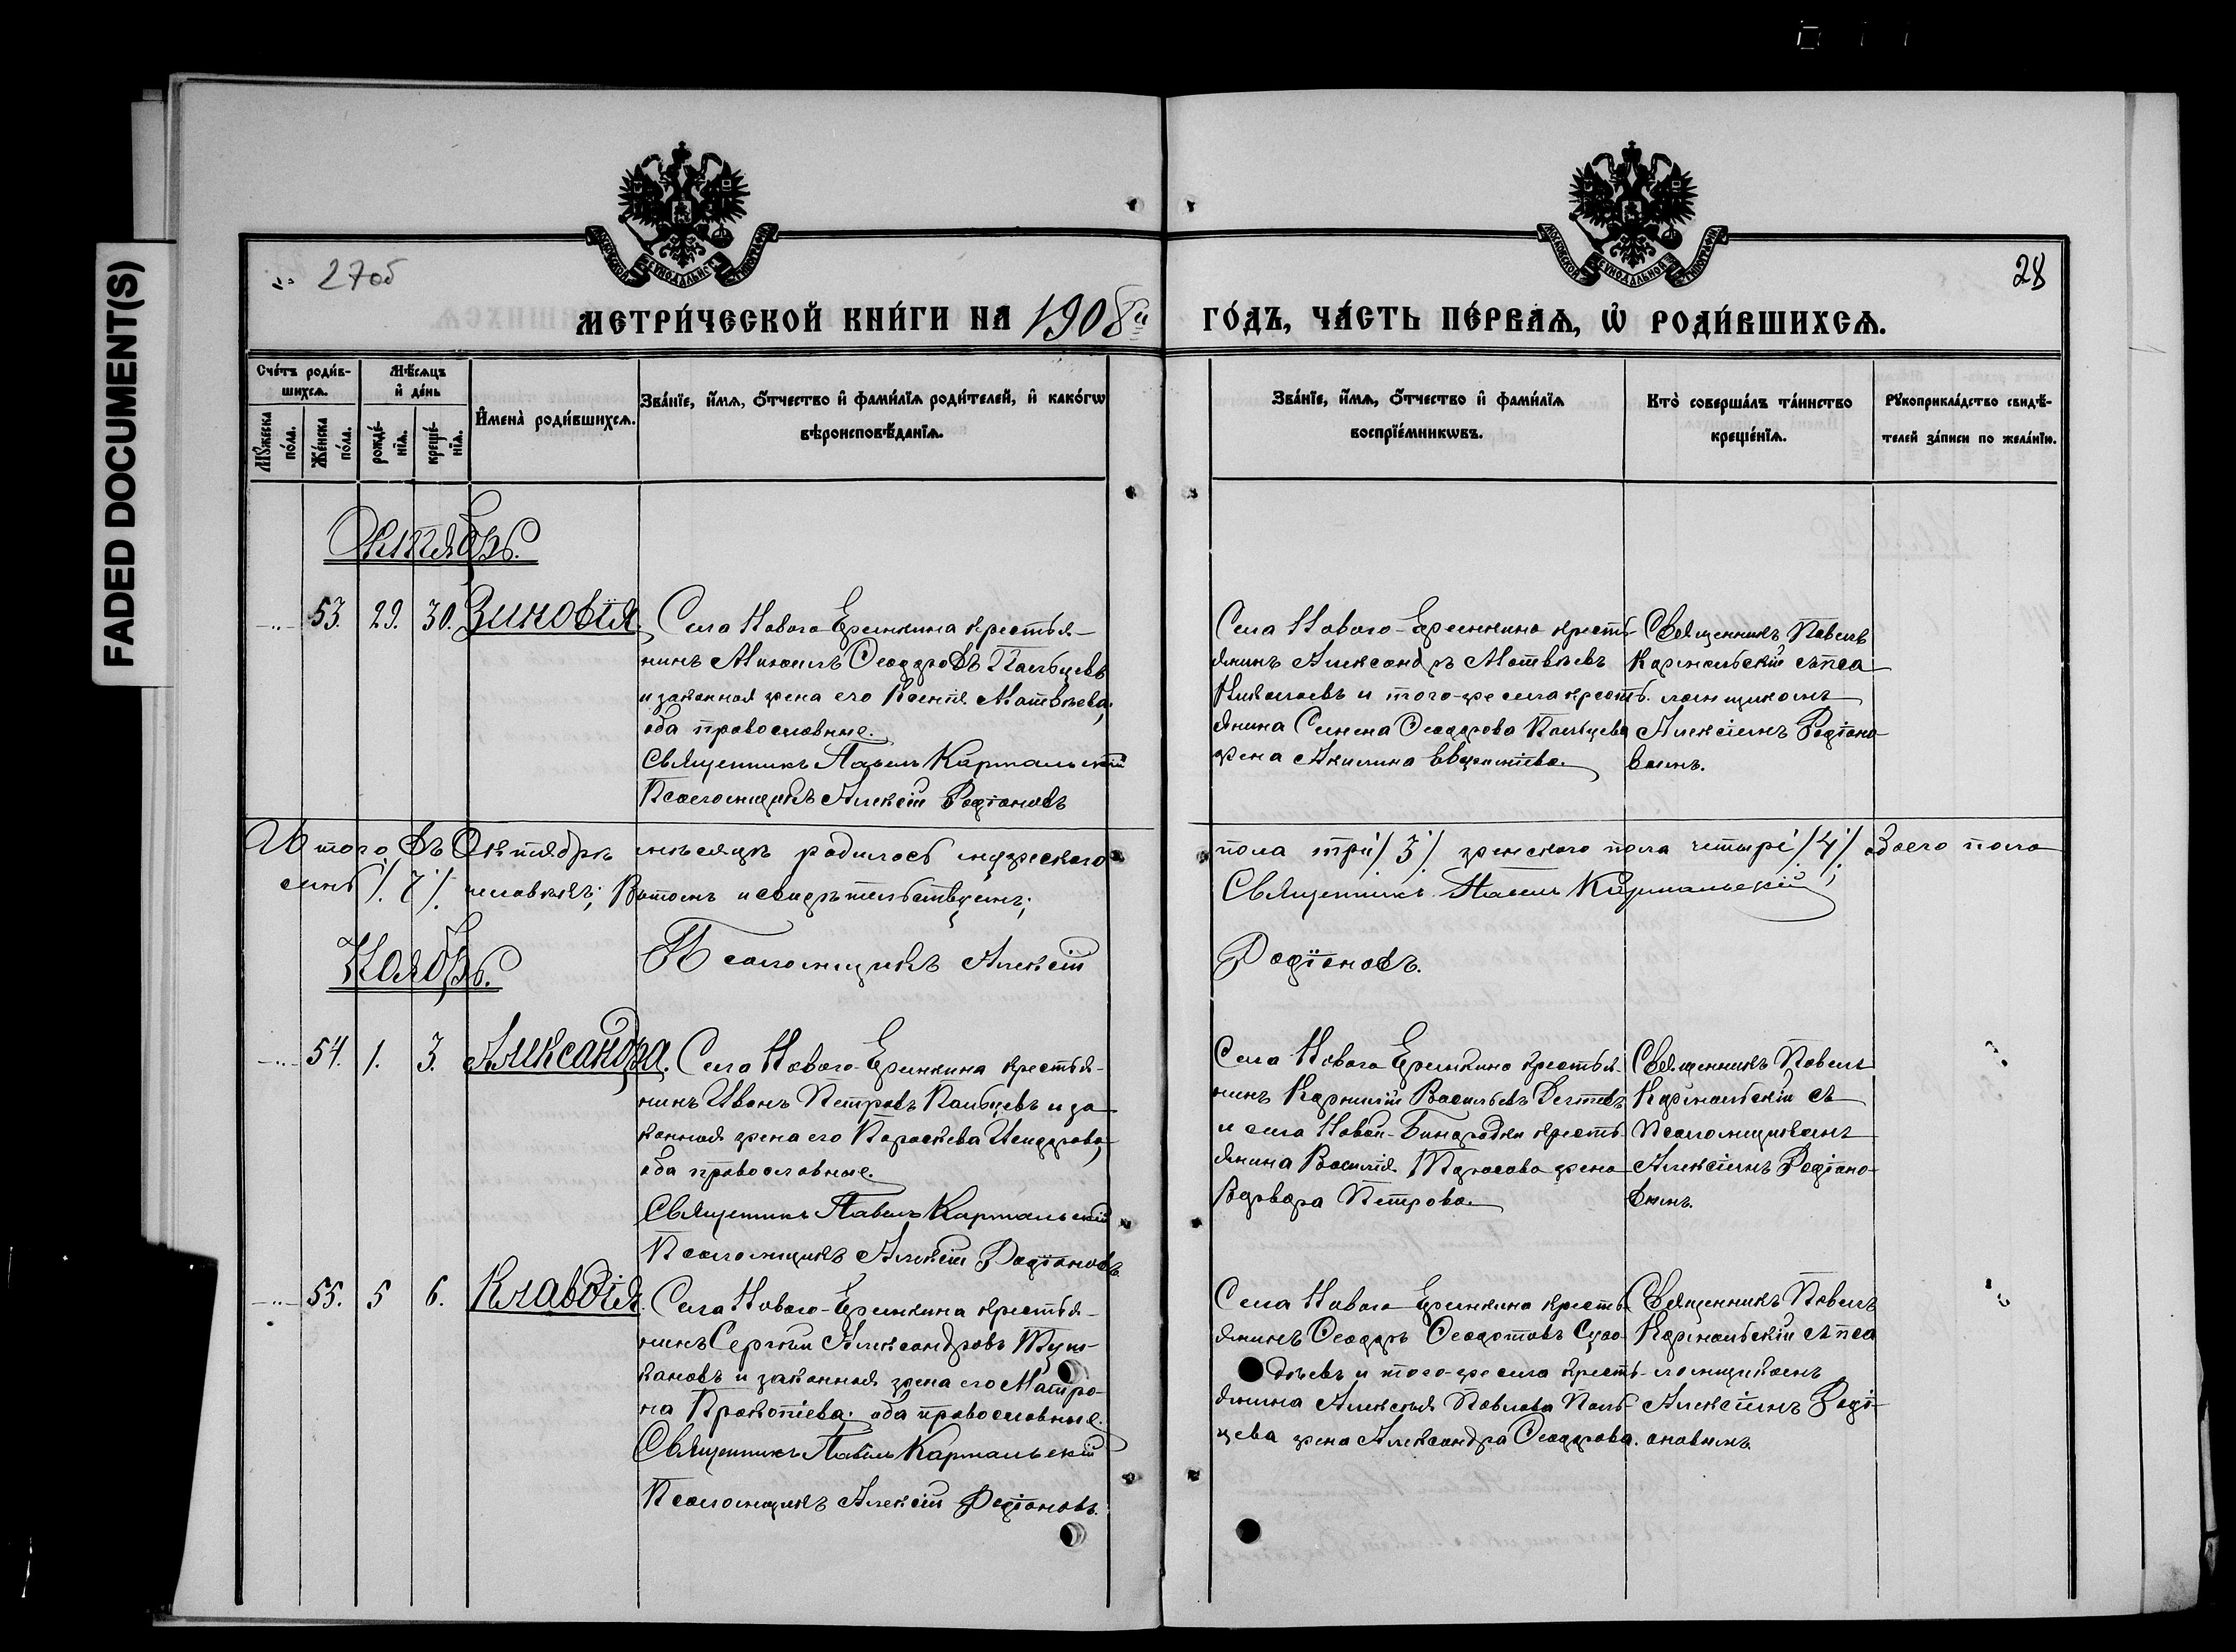 FADED DOCUMENT(S)
27об
28
МЕТРИ́ЧЕСКОЙ КНИ́ГИ НА 1908й ГО́ДЪ, ЧА́СТЬ ПЕ́РВАѦ, Ѡ҆ РОДИ́ВШИХСѦ.
Сче́тъ роди́в-
шихсѧ.
Мѣ́сѧцъ
и҆ де́нь
Мꙋ́жеска
по́ла.
Же́нска
по́ла.
рожде́-
нїѧ.
креще́-
нїѧ.
И҆мена̀ роди́вшихсѧ.
Зва́нїе, и҆́мѧ, ѻ҆́тчество и҆ фами́лїѧ роди́телей, и҆ како́гѡ
вѣроисповѣ́данїѧ.
Зва́нїе, и҆́мѧ, ѻ҆́тчество и҆ фами́лїѧ
воспрїе́мникѡвъ.
Кто̀ соверша́лъ та́инство
креще́нїѧ.
Рꙋкоприкла́дство свидѣ́-
телей за́писи по жела́нїю.
Октябрь.
53. 29. 30. Зиновія.
Села Новаго-Еремкина крестья-
нинъ Михаилъ Ѳеодоровъ Пальцевъ
и законная жена его Ксенія Матвѣева,
оба православные.
Священникъ Павелъ Кармальскій
Псаломщикъ Алексій Родіоновъ
Села Новаго-Еремкина кресть-
янинъ Александръ Матвѣевъ
Николаевъ и того-же села кресть-
янина Симена Ѳеодорова Пальцева
жена Акилина
Священникъ Павелъ
Кармальскій съ пса-
ломщикомъ
Алексіемъ Родіоно-
вымъ.
Итого въ Октябрѣ мѣсяцѣ родилось мужескаго пола три /3/ женскаго пола четыре /4/ обоего пола
семь /7/ человѣкъ; В томъ и свидѣтельствуемъ;
Священникъ Павелъ Кармальскій
Псаломщикъ Алексій Родіоновъ.
Ноябрь.
54. 1. 3. Александра.
Села Новаго-Еремкина крестья-
нинъ Иванъ Петровъ Пальцевъ и за-
конная жена его Параскева Исидорова,
оба православные.
Священникъ Павелъ Кармальскій
Псаломщикъ Алексій Родіоновъ
Села Новаго Еремкина крестья-
нинъ Корнилій Васильевъ
и села Новой-Бинарадки кресть-
янина Василія Тарасова жена
Варвара Петрова.
Священникъ Павелъ
Кармальскій съ
Псаломщикомъ
Алексіемъ Родіоно-
вымъ.
55. 5 6. Клавдія.
Села Новаго-Еремкина крестья-
нинъ Сергѣй Александровъ Туш-
кановъ и законная жена его Матро-
на Прокопіева; оба православные.
Священникъ Павелъ Кармальскій
Псаломщикъ Алексій Родіоновъ.
Села Новаго Еремкина кресть-
янинъ Ѳеодоръ Ѳеодотовъ
и того-же села кресть-
янина Алексѣя Павлова Паль-
цева жена Александра Ѳеодорова.
Священникъ Павелъ
Кармальскій съ пса-
ломщикомъ
Алексіемъ Родi-
оновымъ.